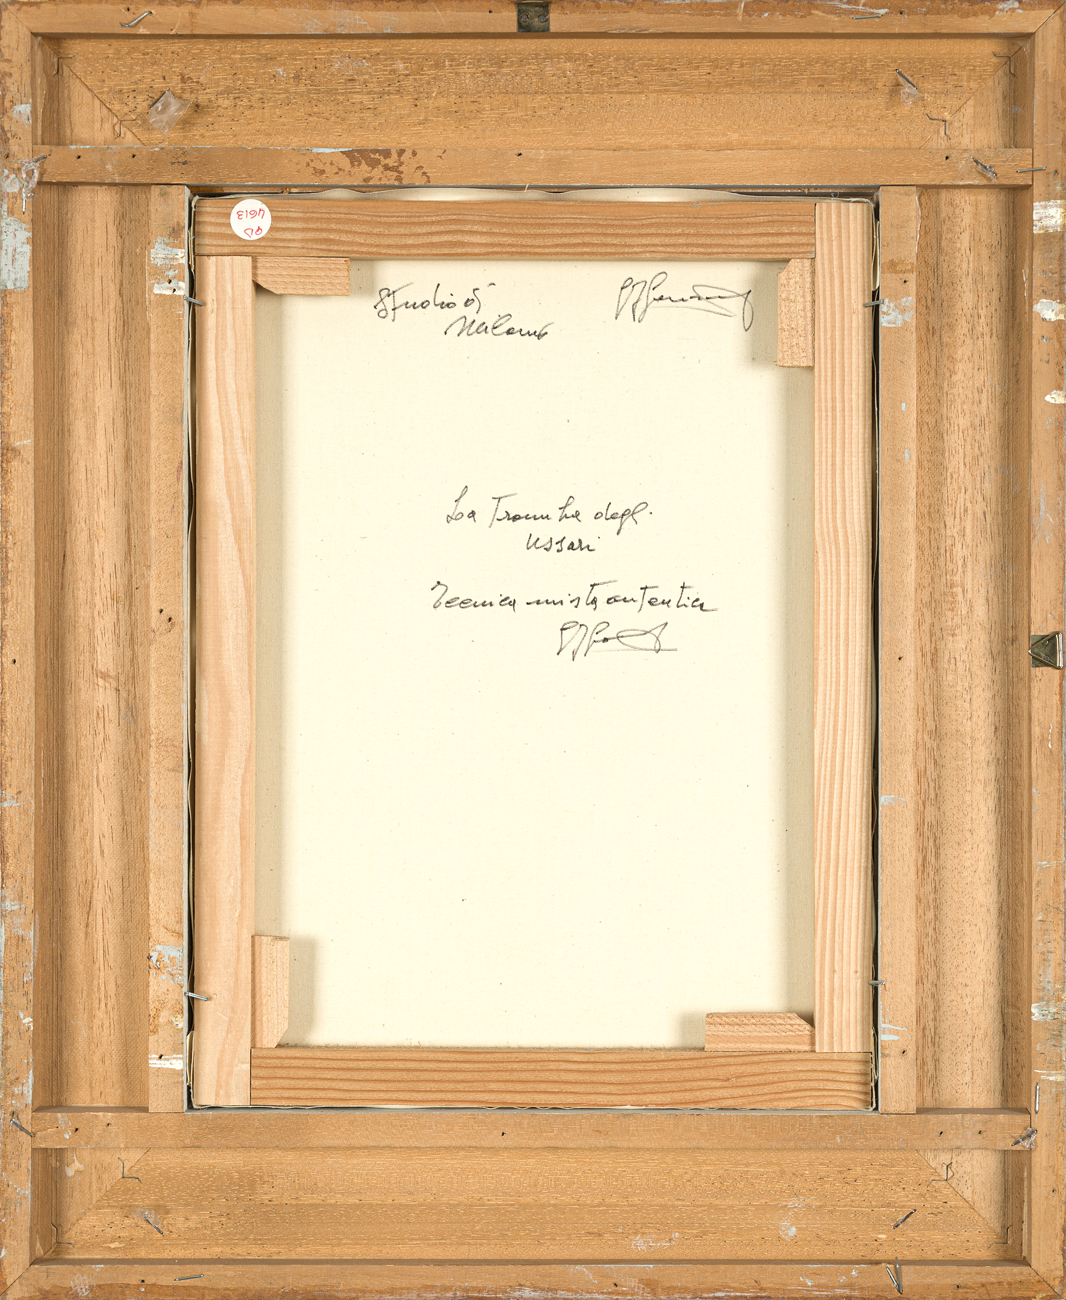 4613
Studio di
Milano
La Tromba degli
Ussari
Tecnica mista autentica